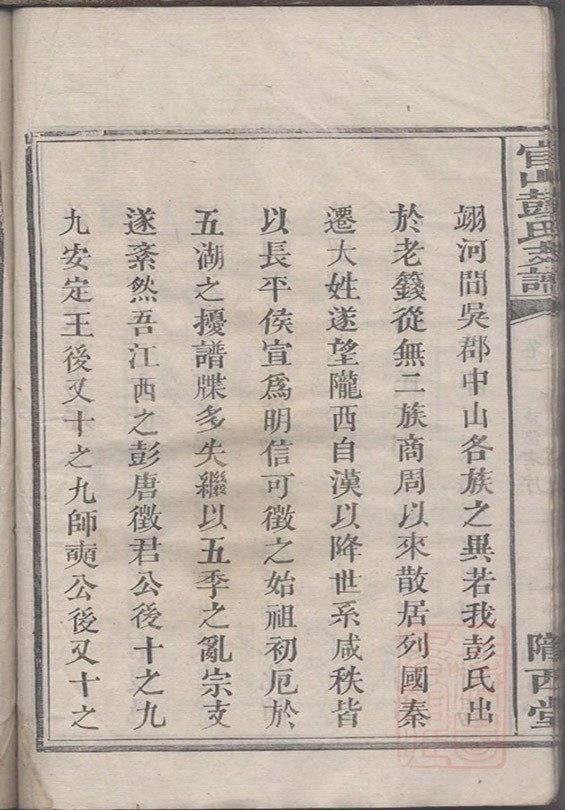 官山彭氏支譜
隴西堂
翊河間吳郡中山各族之異若我彭氏出
於老籛從無二族商周以來散居列國秦
遷大姓遂望隴西自漢以降世系咸秩皆
以長平侯宣爲明信可徵之始祖初厄於
五湖之擾譜牒多失繼以五季之亂宗支
遂紊然吾江西之彭唐徵君公後十之九
九安定王後又十之九師奭公後又十之